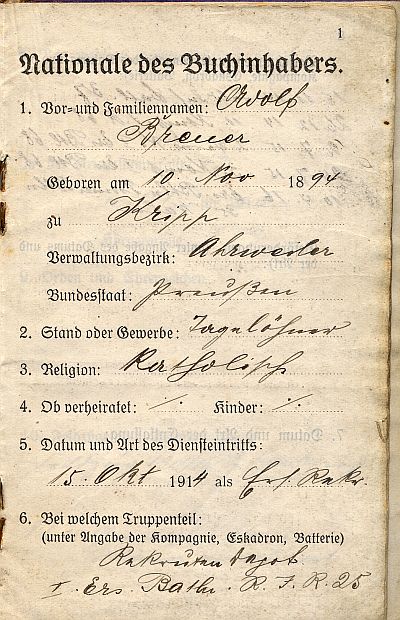 1
Nationale des Buchinhabers.
1. Vor- und Familiennamen: Adolf
Breuer
Geboren am 10 Nov 1894
zu Kripp
Verwaltungsbezirk: Ahrweiler
Bundesstaat: Preußen
2. Stand oder Gewerbe: Tagelöhner
3. Religion: Katholisch
4. Ob verheiratet: ./. Kinder: ./.
5. Datum und Art des Diensteintritts:
15. Okt 1914 als Ers. Rekr.
6. Bei welchem Truppenteil:
(unter Angabe der Kompagnie, Eskadron, Batterie)
Rekruten Depot
I. Ers. Batln. R. I. R. 25